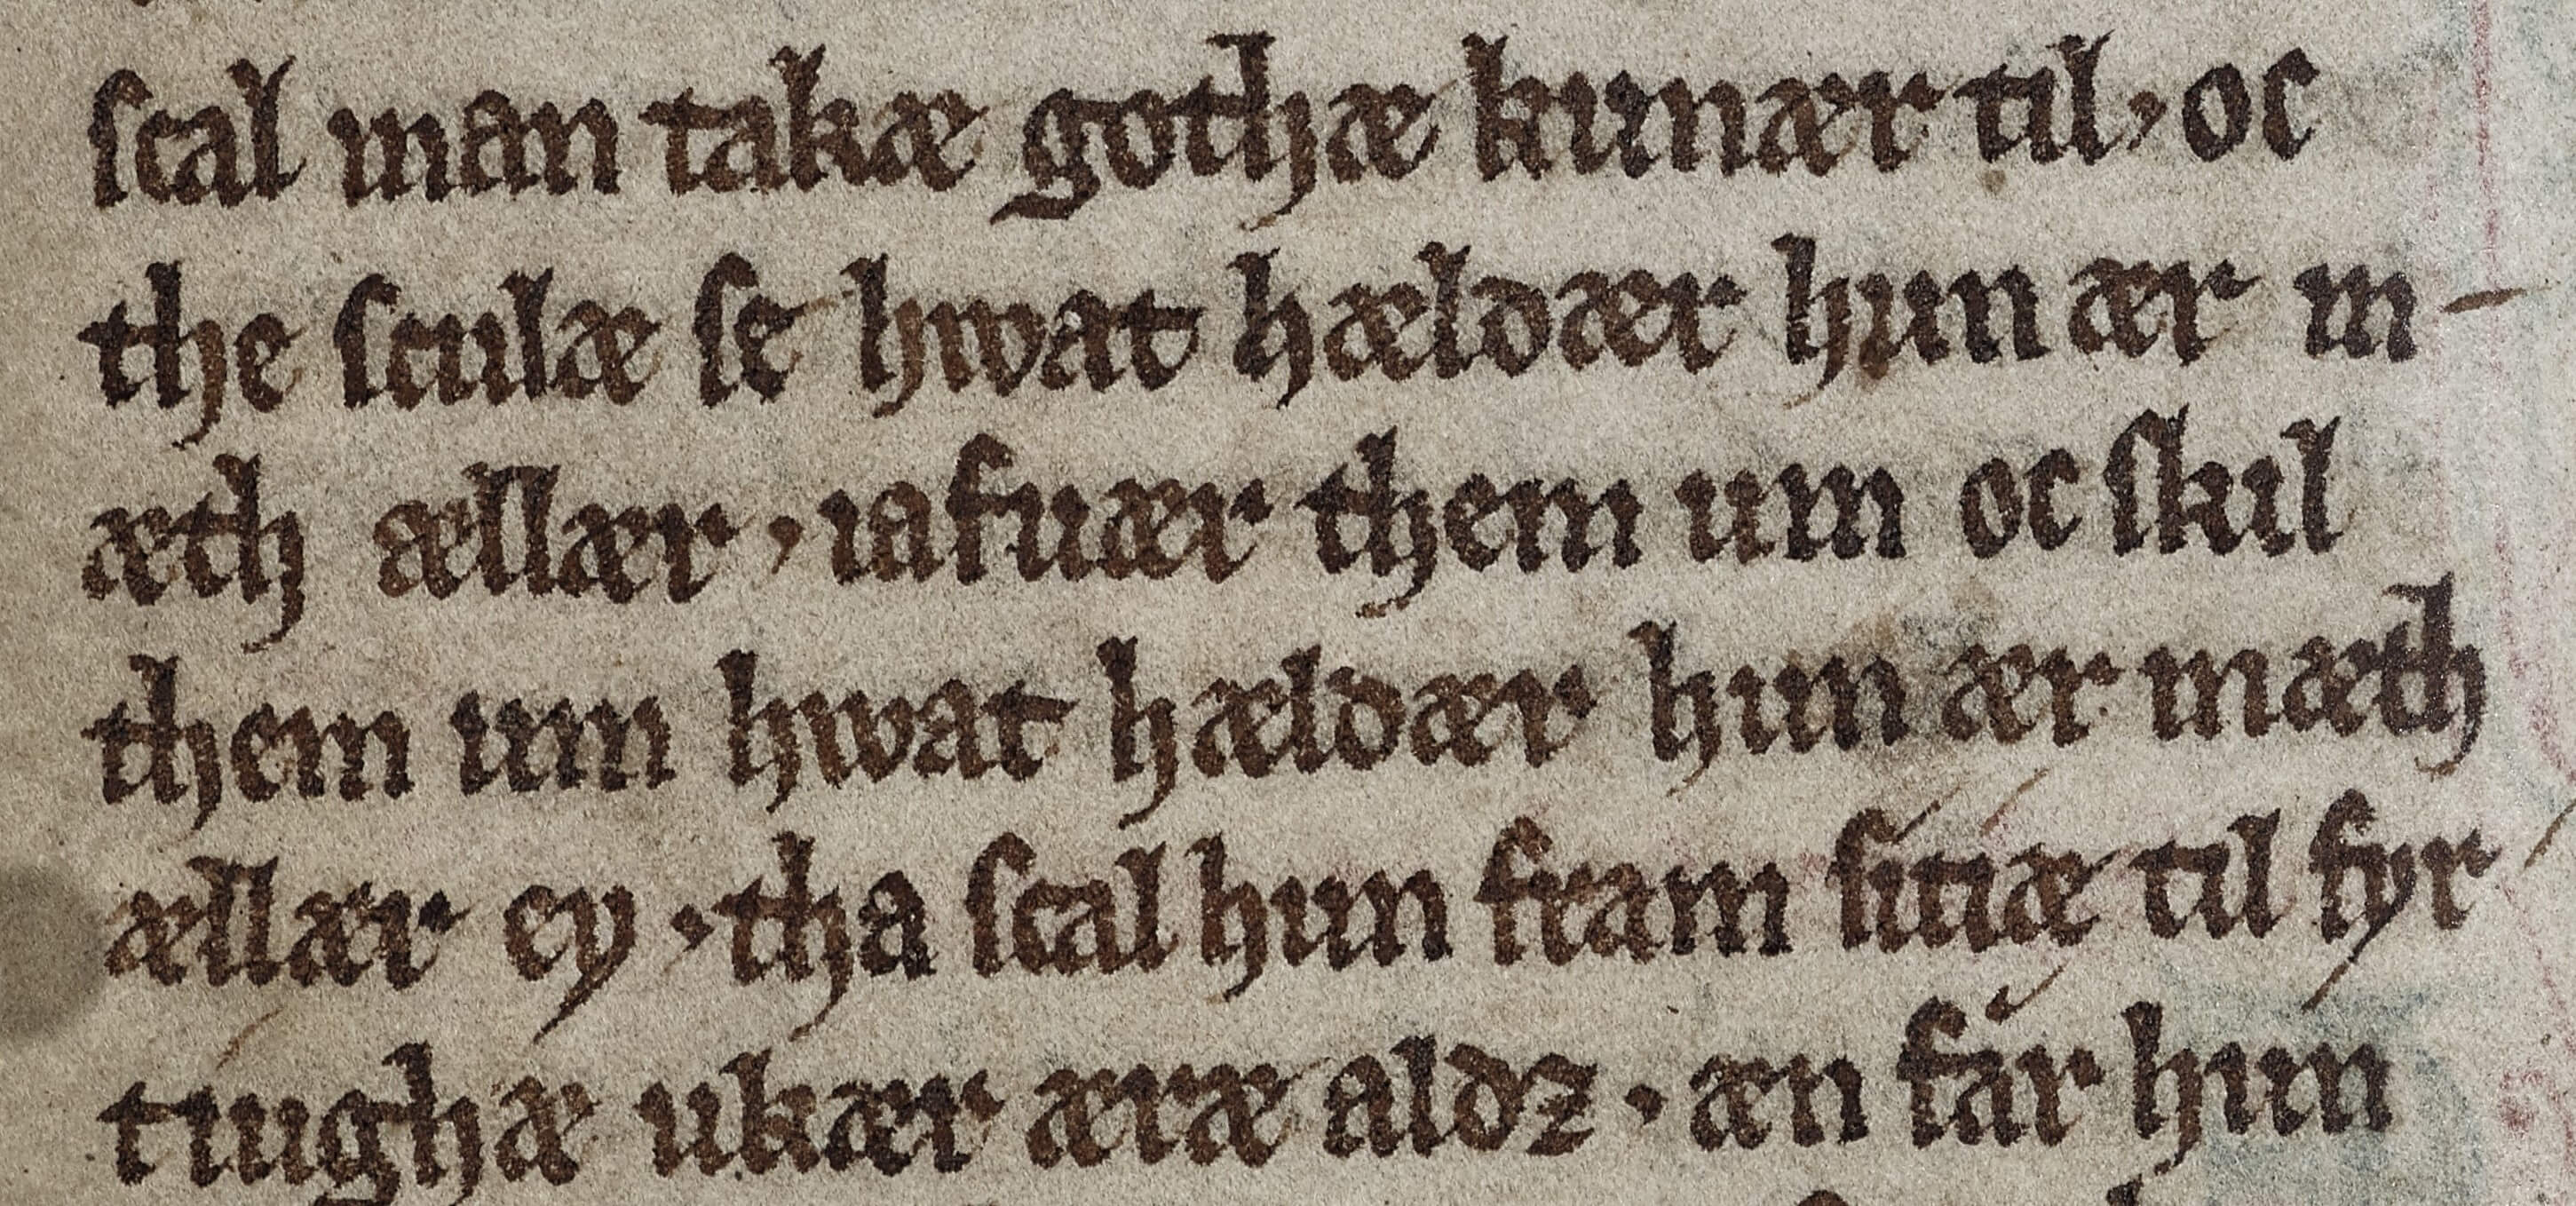 scal man takæ gothæ kunær til, oc
the sculæ se hwat hældær hun ær m-
æth ællær, iafuær them um oc skil
them um hwat hældær hun ær mæth
ællær ey · tha scal hun fram sitiæ til fyr
tiughæ ukær æræ aldz · æn fár hun